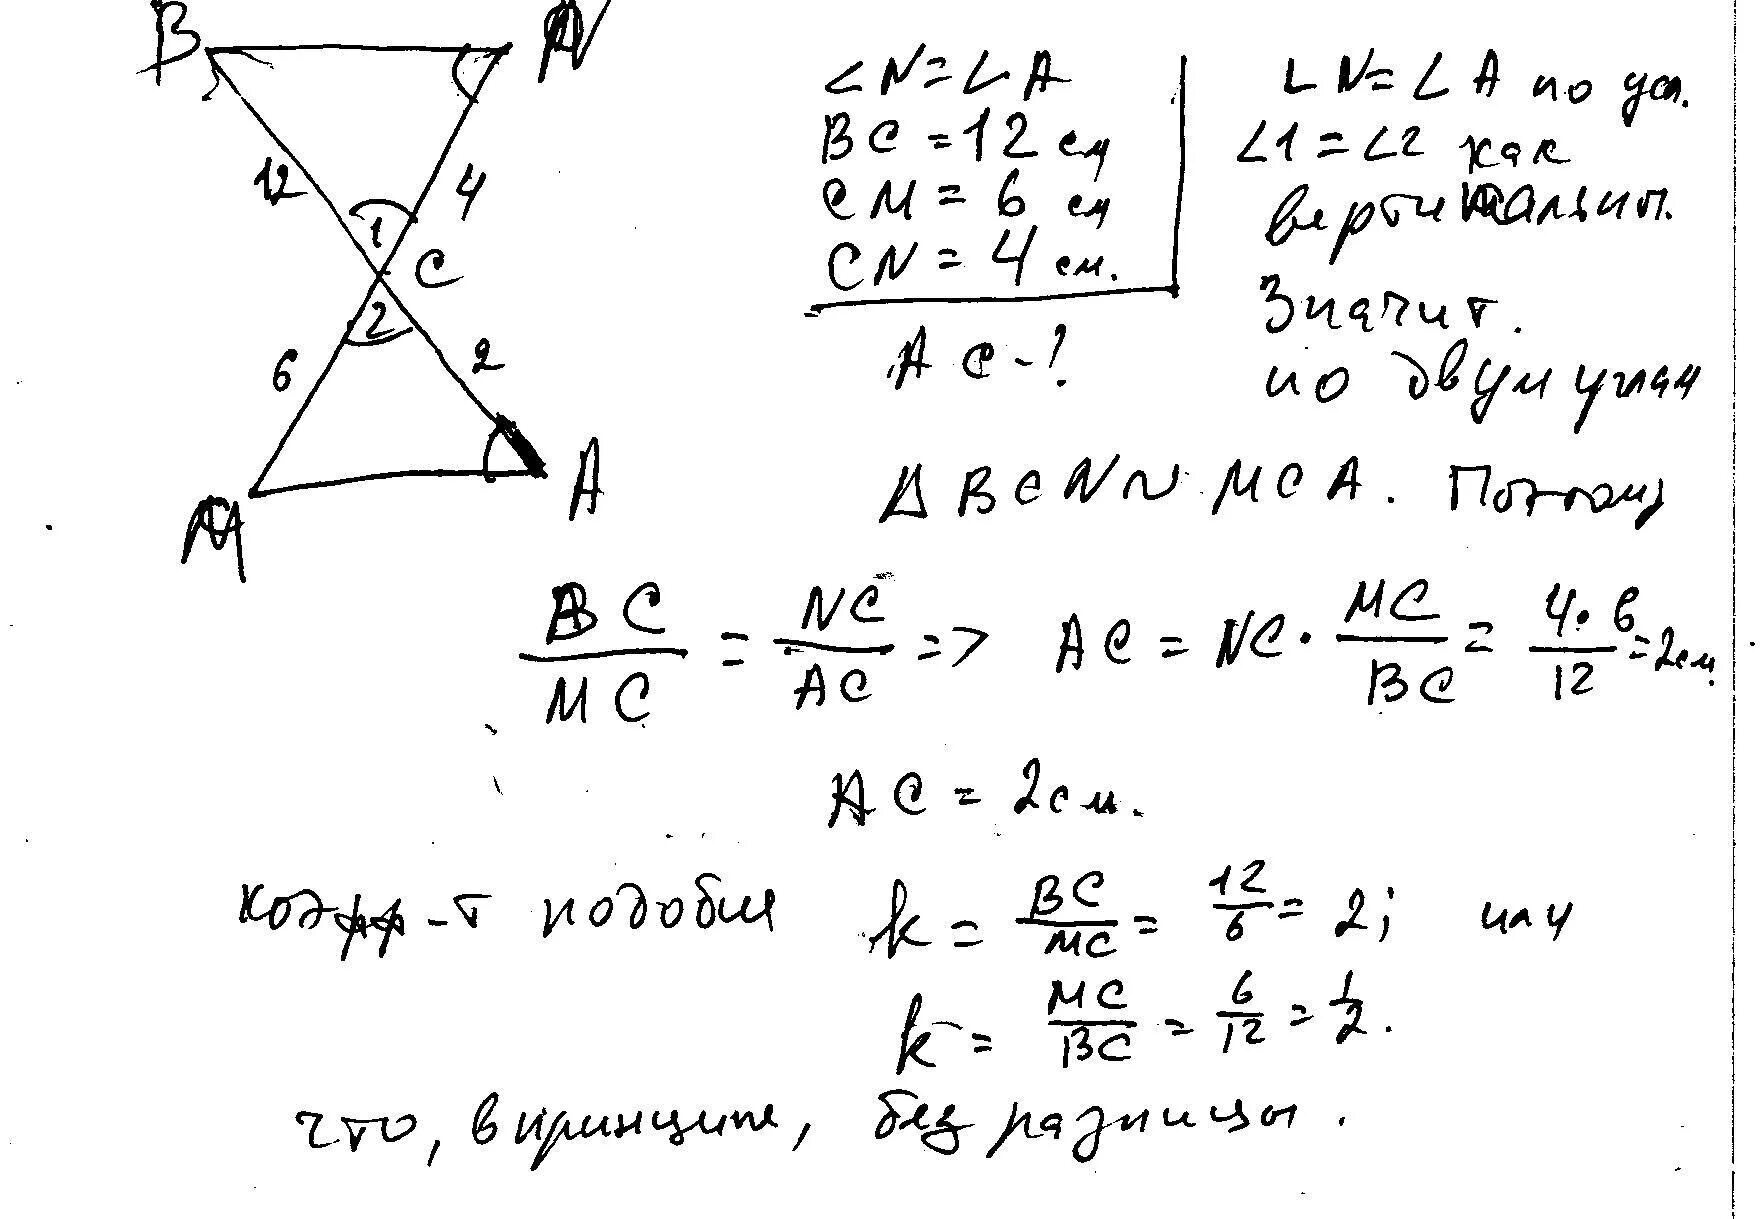 B N
12 4
1
C
2
6 2
M A
∠N=∠A
BC=12 см
CM=6 см
CN=4 см.
AC-?
∠N=∠A по усл.
∠1=∠2 как
вертикальн.
Значит.
по двум углам
Δ BCN ~ MCA. Поэтому
BC/MC = NC/AC => AC = NC · MC/BC = 4·6/12 = 2см.
AC = 2см.
коэфф-т подобия k = BC/MC = 12/6 = 2; или
k = MC/BC = 6/12 = 1/2.
что, в принципе, без разницы.